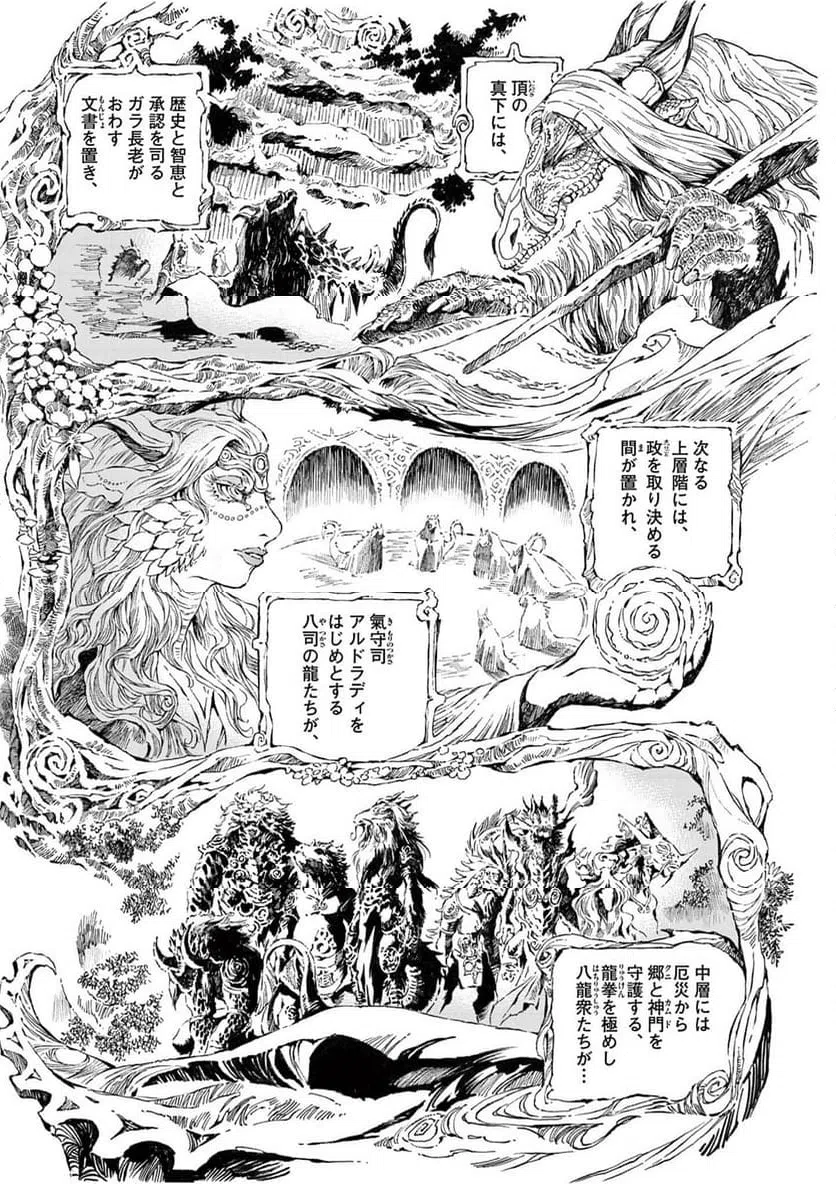 頂の
真下には、
歴史と智恵と
承認を司る
ガラ長老が
おわす
文書を置き、
次なる
上層階には、
政を取り決める
間が置かれ、
氣守司
アルドラディを
はじめとする
八司の龍たちが、
中層には
厄災から
郷と神門を
守護する、
龍拳を極めし
八龍衆たちが…